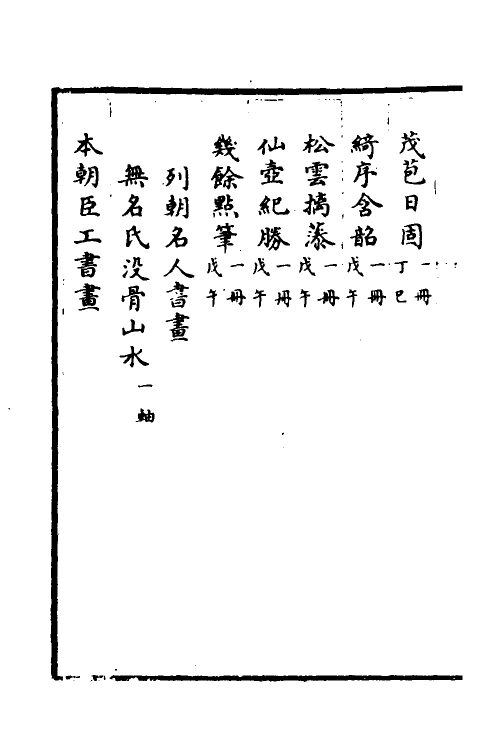 茂苞日固一冊丁巳
綺序含韶一冊戊午
松雲摛藻一冊戊午
仙壺紀勝一冊戊午
幾餘點筆一冊戊午
列朝名人書畫
無名氏没骨山水一軸
本朝臣工書畫